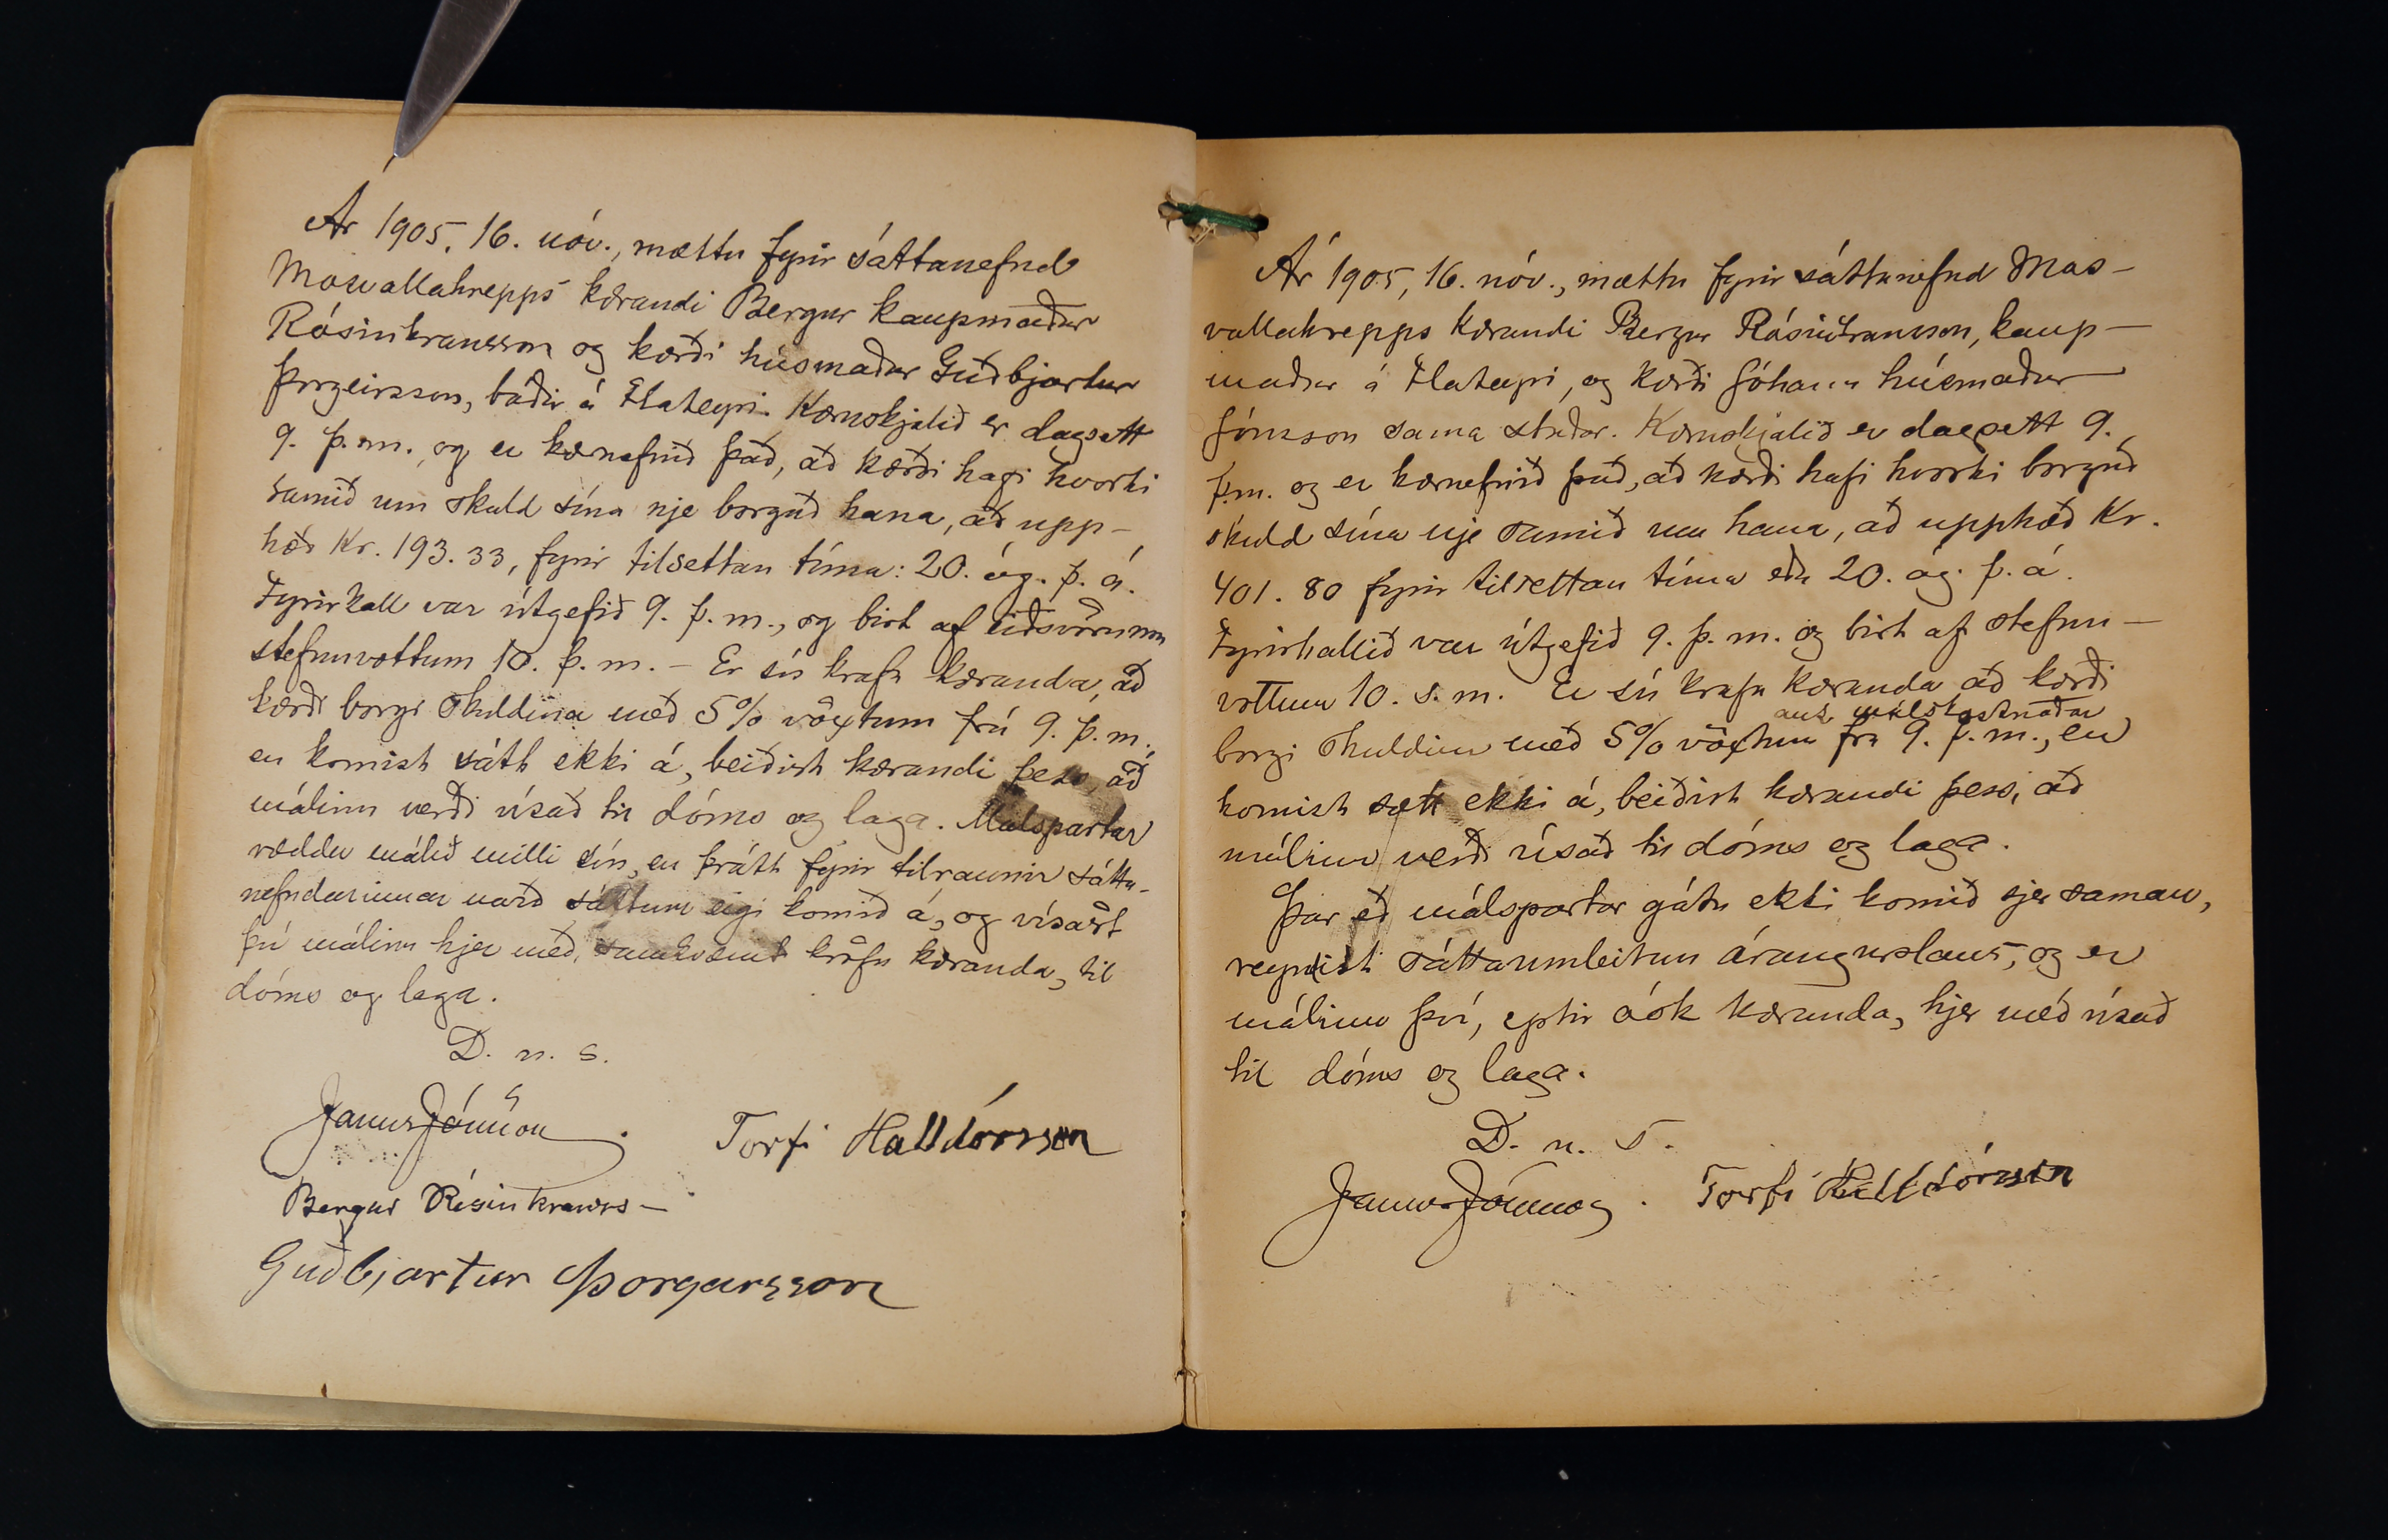 Ár 1905, 16. nóv., mættu fyrir sáttanefnd
Mosvallahrepps kærandi Bergur kaupmaður
Rósinkransson og kærði húsmaður Guðbjartur
Þorgeirsson, báðir á Flateyri. Kæruskjalið er dagsett
9. þ.m. og er kæruefnið það, að kærði hafi hvorki
samið um skuld sína nje borgað hana, að upp-
hæð Kr. 193.33, fyrir tilsettan tíma: 20. ág. þ. á.
Fyrirkall var útgefið 9. þ. m., og birt af eiðsvörnum
stefnuvottum 10. þ. m. - Er sú krafa kæranda, að
kærði borgi skuldina með 5% vöxtum frá 9. þ. m.,
en komist sátt ekki á, beiðist kærandi þess, að
málinu verði vísað til dóms og laga. Málspartar
ræddu málið milli sín, en þrátt fyrir tilraunir sátta-
nefndarinnar varð sáttum eigi komið á, og vísast
því málinu hjer með, samkvæmt kröfu kæranda, til
dóms og laga.
D. u. s.
Janus Jónsson. Torfi Halldórsson
Bergur Rósinkranss-
Guðbjartur Þorgeirsson
Ár 1905, 16. nóv., mættu fyrir sáttanefnd Mos-
vallahrepps kærandi Bergur Rósinkransson, kaup-
maður á Flateyri, og kærði Jóhann húsmaður
Jónsson sama staðar. Kæruskjalið er dagsett 9.
þ.m. og er kæruefnið það, að kærði hafi hvorki borgað
skuld sína nje samið um hana, að upphæð Kr.
401.80 fyrir tilsettan tíma eða 20. ág. þ. á.
Fyrirkallið var útgefið 9. þ. m. og birt af stefnu-
vottum 10. s. m. Er sú krafa kæranda að kærði
auk málskostnaðar
borgi skuldina með 5% vöxtum frá 9. þ. m., en
komist sætt ekki á, beiðist kærandi þess, að
málinu verði vísað til dóms og laga.
Þar eð málspartar gátu ekki komið sjer saman,
reyndist sáttaumleitun árangurslaus, og er
málinu því, eptir ósk kæranda, hjer með vísað
til dóms og laga.
D. u. s.
Janus Jónsson. Torfi Halldórsson